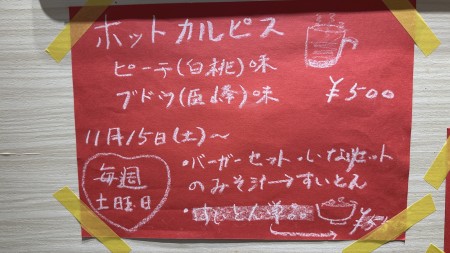 ホットカルピス
ピーチ(白桃)味
ブドウ(巨峰)味
¥500
11月15日(土)〜
毎週
土曜日
・バーガーセット・いなりセット
のみそ汁→すいとん
・すいとん単品